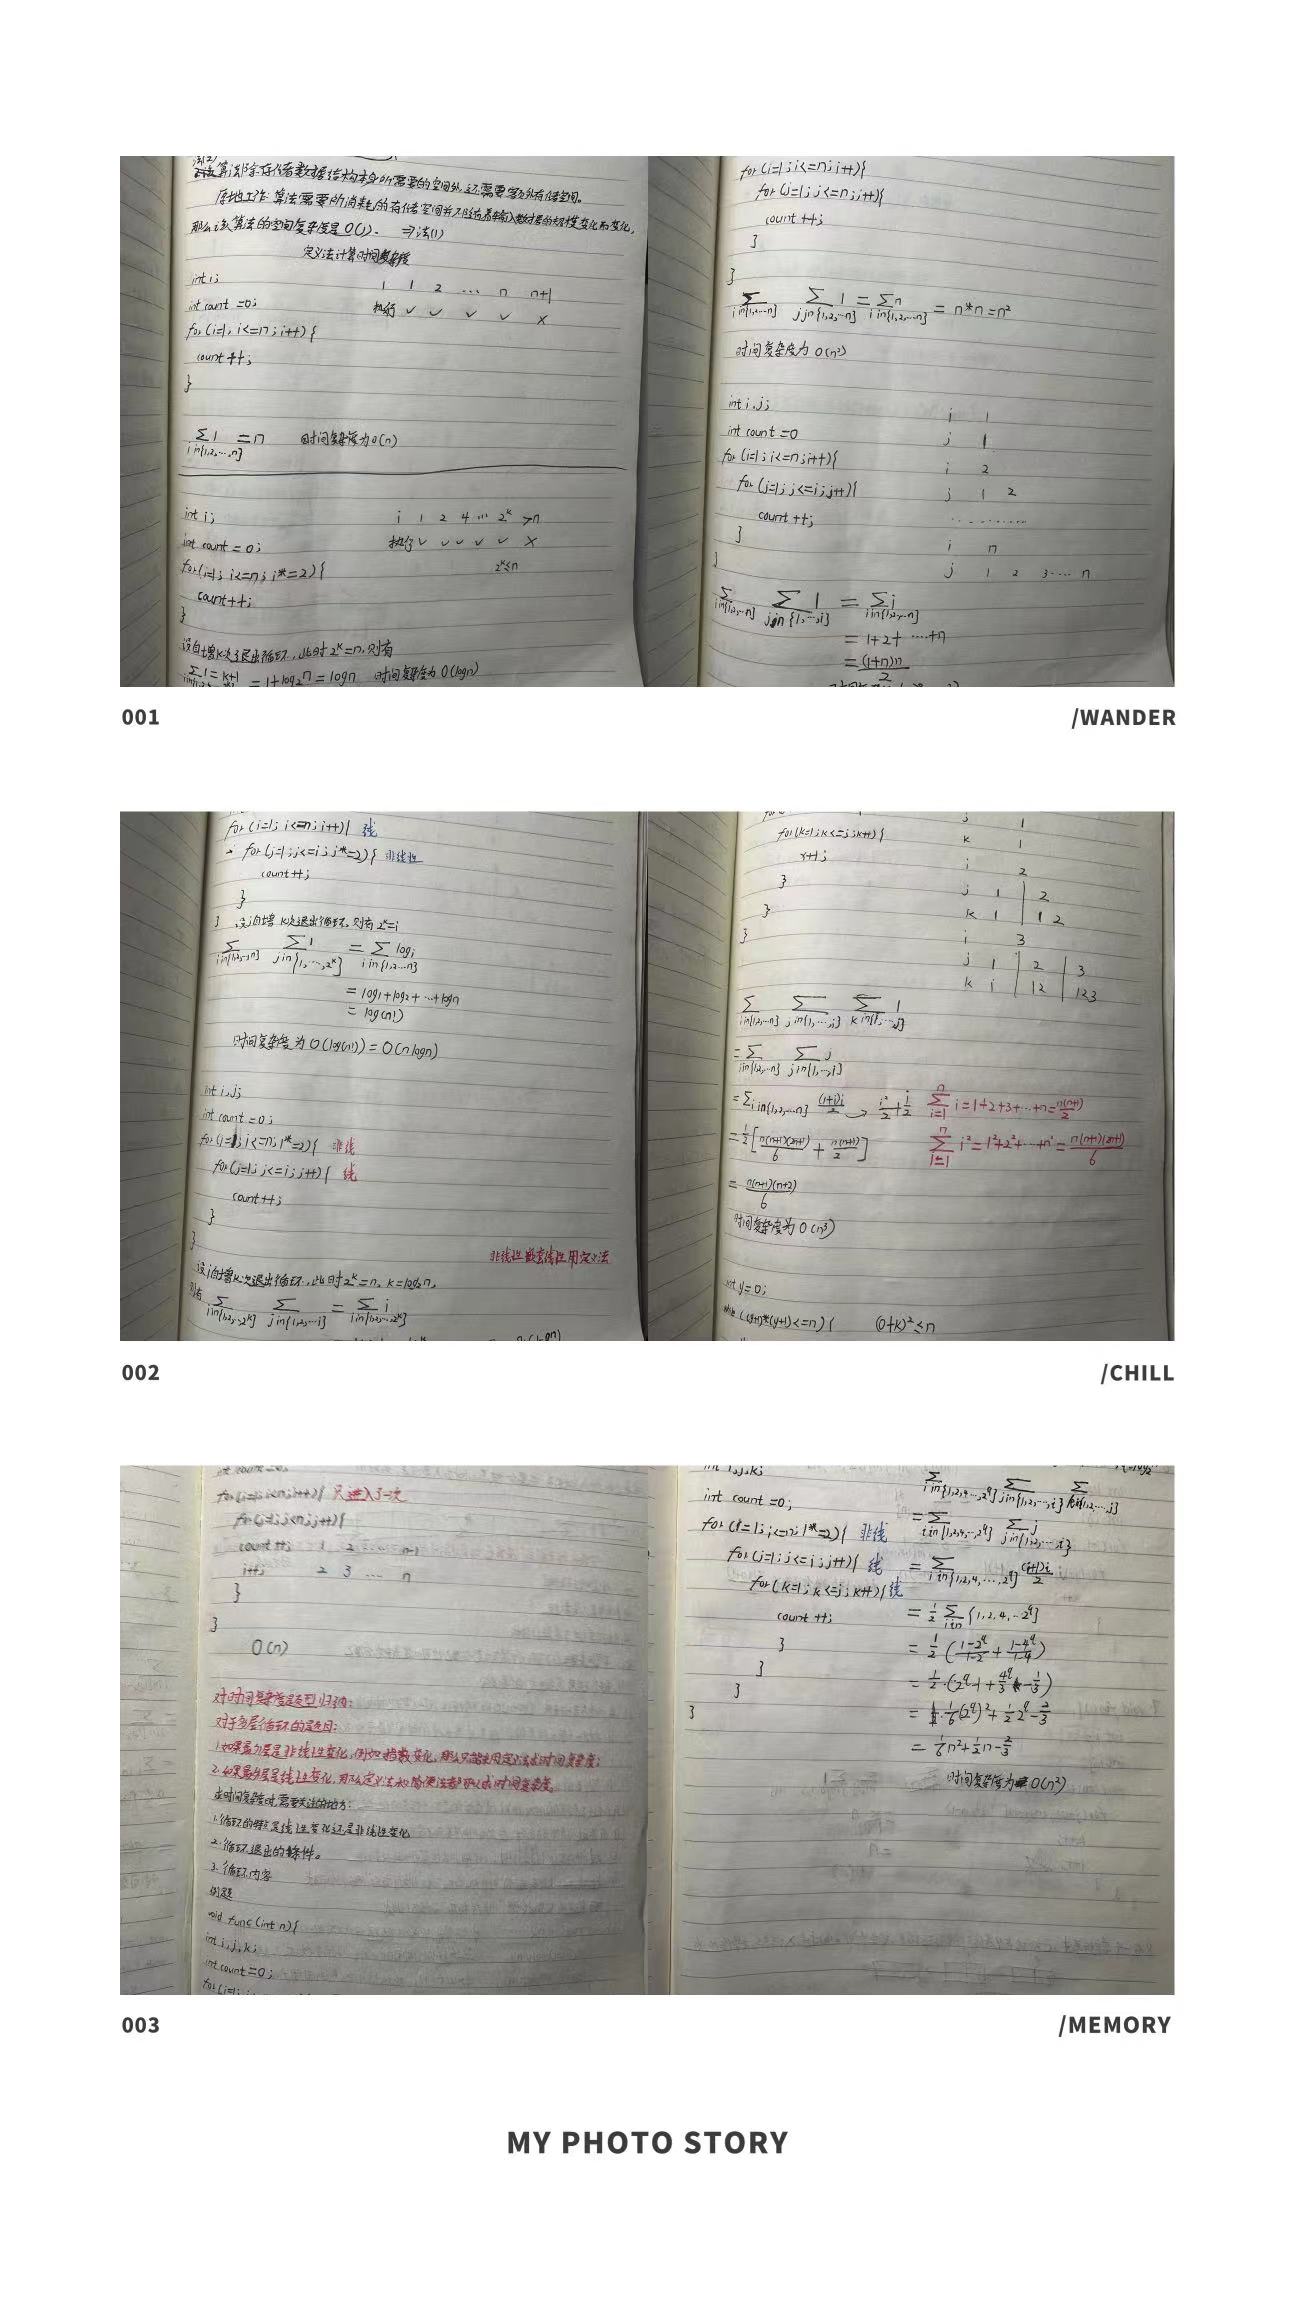 该算法除存储数据结构本身所需要的空间外,还需要额外存储空间。
原地工作:算法需要所消耗的存储空间并不随着输入数据的规模变化而变化,
那么该算法的空间复杂度是O(1).
定义法计算时间复杂度
int i;
i 1 2 … n n+1
int count =0;
执行 ✓ ✓ ✓ ✓ ×
for (i=1; i<=n; i++) {
count++;
}
∑1 =n 时间复杂度为O(n)
i in{1,2,…,n}
int i;
i 1 2 4 … 2^k >n
int count = 0;
执行 ✓ ✓ ✓ ✓ ✓ ×
for(i=1; i<=n; i*=2){
2^k≤n
count++;
}
设自增k次退出循环,此时2^k=n,则有
∑1 = k+1 = 1+log₂n = logn 时间复杂度为O(logn)
for (i=1; i<=n; i++){
for (j=1; j<=n; j++){
count ++;
}
}
∑ ∑ 1 = ∑n = n*n =n²
i in{1,2,…n} j in{1,2,…n} i in{1,2,…n}
时间复杂度为 O(n²)
int i,j;
i 1
int count =0
j 1
for (i=1; i<=n; i++){
i 2
for (j=1; j<=i; j++){
j 1 2
count ++;
…………
}
i n
}
j 1 2 3…… n
∑ ∑ 1 = ∑i
i in{1,2,…n} j in {1,…,i} i in{1,2,…n}
= 1+2+ ……+n
= (1+n)n/2
001 /WANDER
for (i=1; i<=n; i++){ 线
for (j=1; j<=i; j*=2){ 非线性
count++;
}
} 设j自增k次退出循环,则有2^k=i
∑ ∑ 1 = ∑ logi
i in{1,2,…n} j in{1,…,2^k} i in{1,2…n}
= log1+log2+ …+logn
= log(n!)
时间复杂度为 O(log(n!)) = O(nlogn)
int i,j;
int count =0;
for (i=1; i<=n; i*=2){ 非线
for (j=1; j<=i; j++){ 线
count++;
}
}
非线性嵌套线性用定义法
设i自增k次退出循环,此时2^k=n, k=log₂n,
则有 ∑ ∑ = ∑ i
i in{1,2,…,2^k} j in{1,…i} i in{1,2,…2^k}
j 1
for(k=1; k<=j; k++){
k 1
x++;
i 2
}
j 1 2
}
k 1 1 2
}
i 3
j 1 2 3
k 1 12 123
∑ ∑ ∑ 1
i in{1,2,…n} j in{1,…,i} k in{1,…,j}
= ∑ ∑ j
i in{1,2,…n} j in{1,…,i}
= ∑ i in{1,2,…,n} (1+i)i/2 → i²/2 + i/2
∑ i=1 n i = 1+2+3+…+n = n(n+1)/2
= ½[n(n+1)(2n+1)/6 + n(n+1)/2]
∑ i=1 n i² = 1²+2²+…+n² = n(n+1)(2n+1)/6
= n(n+1)(n+2)/6
时间复杂度为 O(n³)
int y=0;
while ((y+1)*(y+1)<=n) { (0+k)²≤n
002 /CHILL
int count =0;
只进入了一次
for(j=i; j<n; j++){
count ++; 1 2 …… n-1
i++; 2 3 …… n
}
}
O(n)
对时间复杂度题型归纳:
对于多层循环的题目:
1.如果最外层是非线性变化,例如指数变化,那么只能使用定义法求时间复杂度;
2.如果最外层是线性变化,那么定义法和简便法都可以求时间复杂度.
求时间复杂度时,需要关注的地方:
1.循环的特点是线性变化还是非线性变化
2.循环退出的条件。
3.循环内容
例题
void func (int n){
int i, j, k;
int count =0;
for (i=1;
int i,j,k;
int count =0;
for (i=1; i<=n; i*=2){ 非线
for (j=1; j<=i; j++){ 线
for (k=1; k<=j; k++){ 线
count ++;
}
}
}
}
∑ ∑ ∑
i in{1,2,4…,2^q} j in{1,2,…,i} k in{1,2,…,j}
= ∑ ∑ j
i in{1,2,4,…,2^q} j in{1,2,…,i}
= ∑ i in{1,2,4,…,2^q} (i+1)i/2
= ½ ∑ i in {1,2,4,…2^q}
= ½ (1-2^q/1-2 + 1-4^q/1-4)
= ½·(2^q-1 + 4^q/3 - ⅓)
= ⅙(2^q)² + ½2^q - ⅔
= ⅙n² + ½n - ⅔
时间复杂度为 O(n²)
003 /MEMORY
MY PHOTO STORY